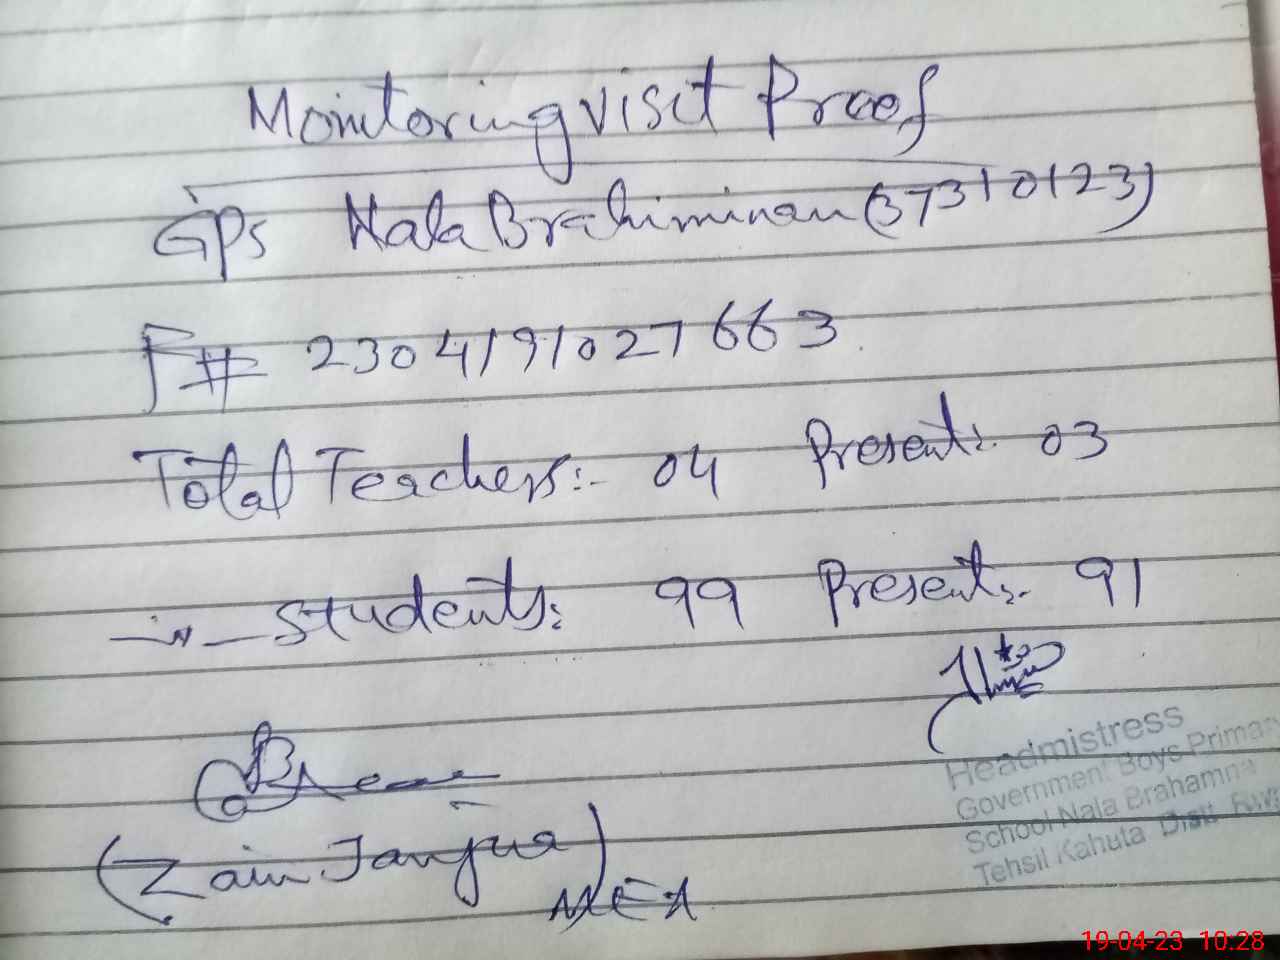 Monitoring visit Proof
GPS Nala Brahiminan (37310123)
F# 2304191027663
Total Teachers:- 04 Present:. 03
-"- Students: 99 Present:. 91
Headmistress
Government Boys Primar
School Nala Brahamna
Tehsil Kahuta Distt. RW
(Zain Janjua)
MEA
19-04-23 10:28